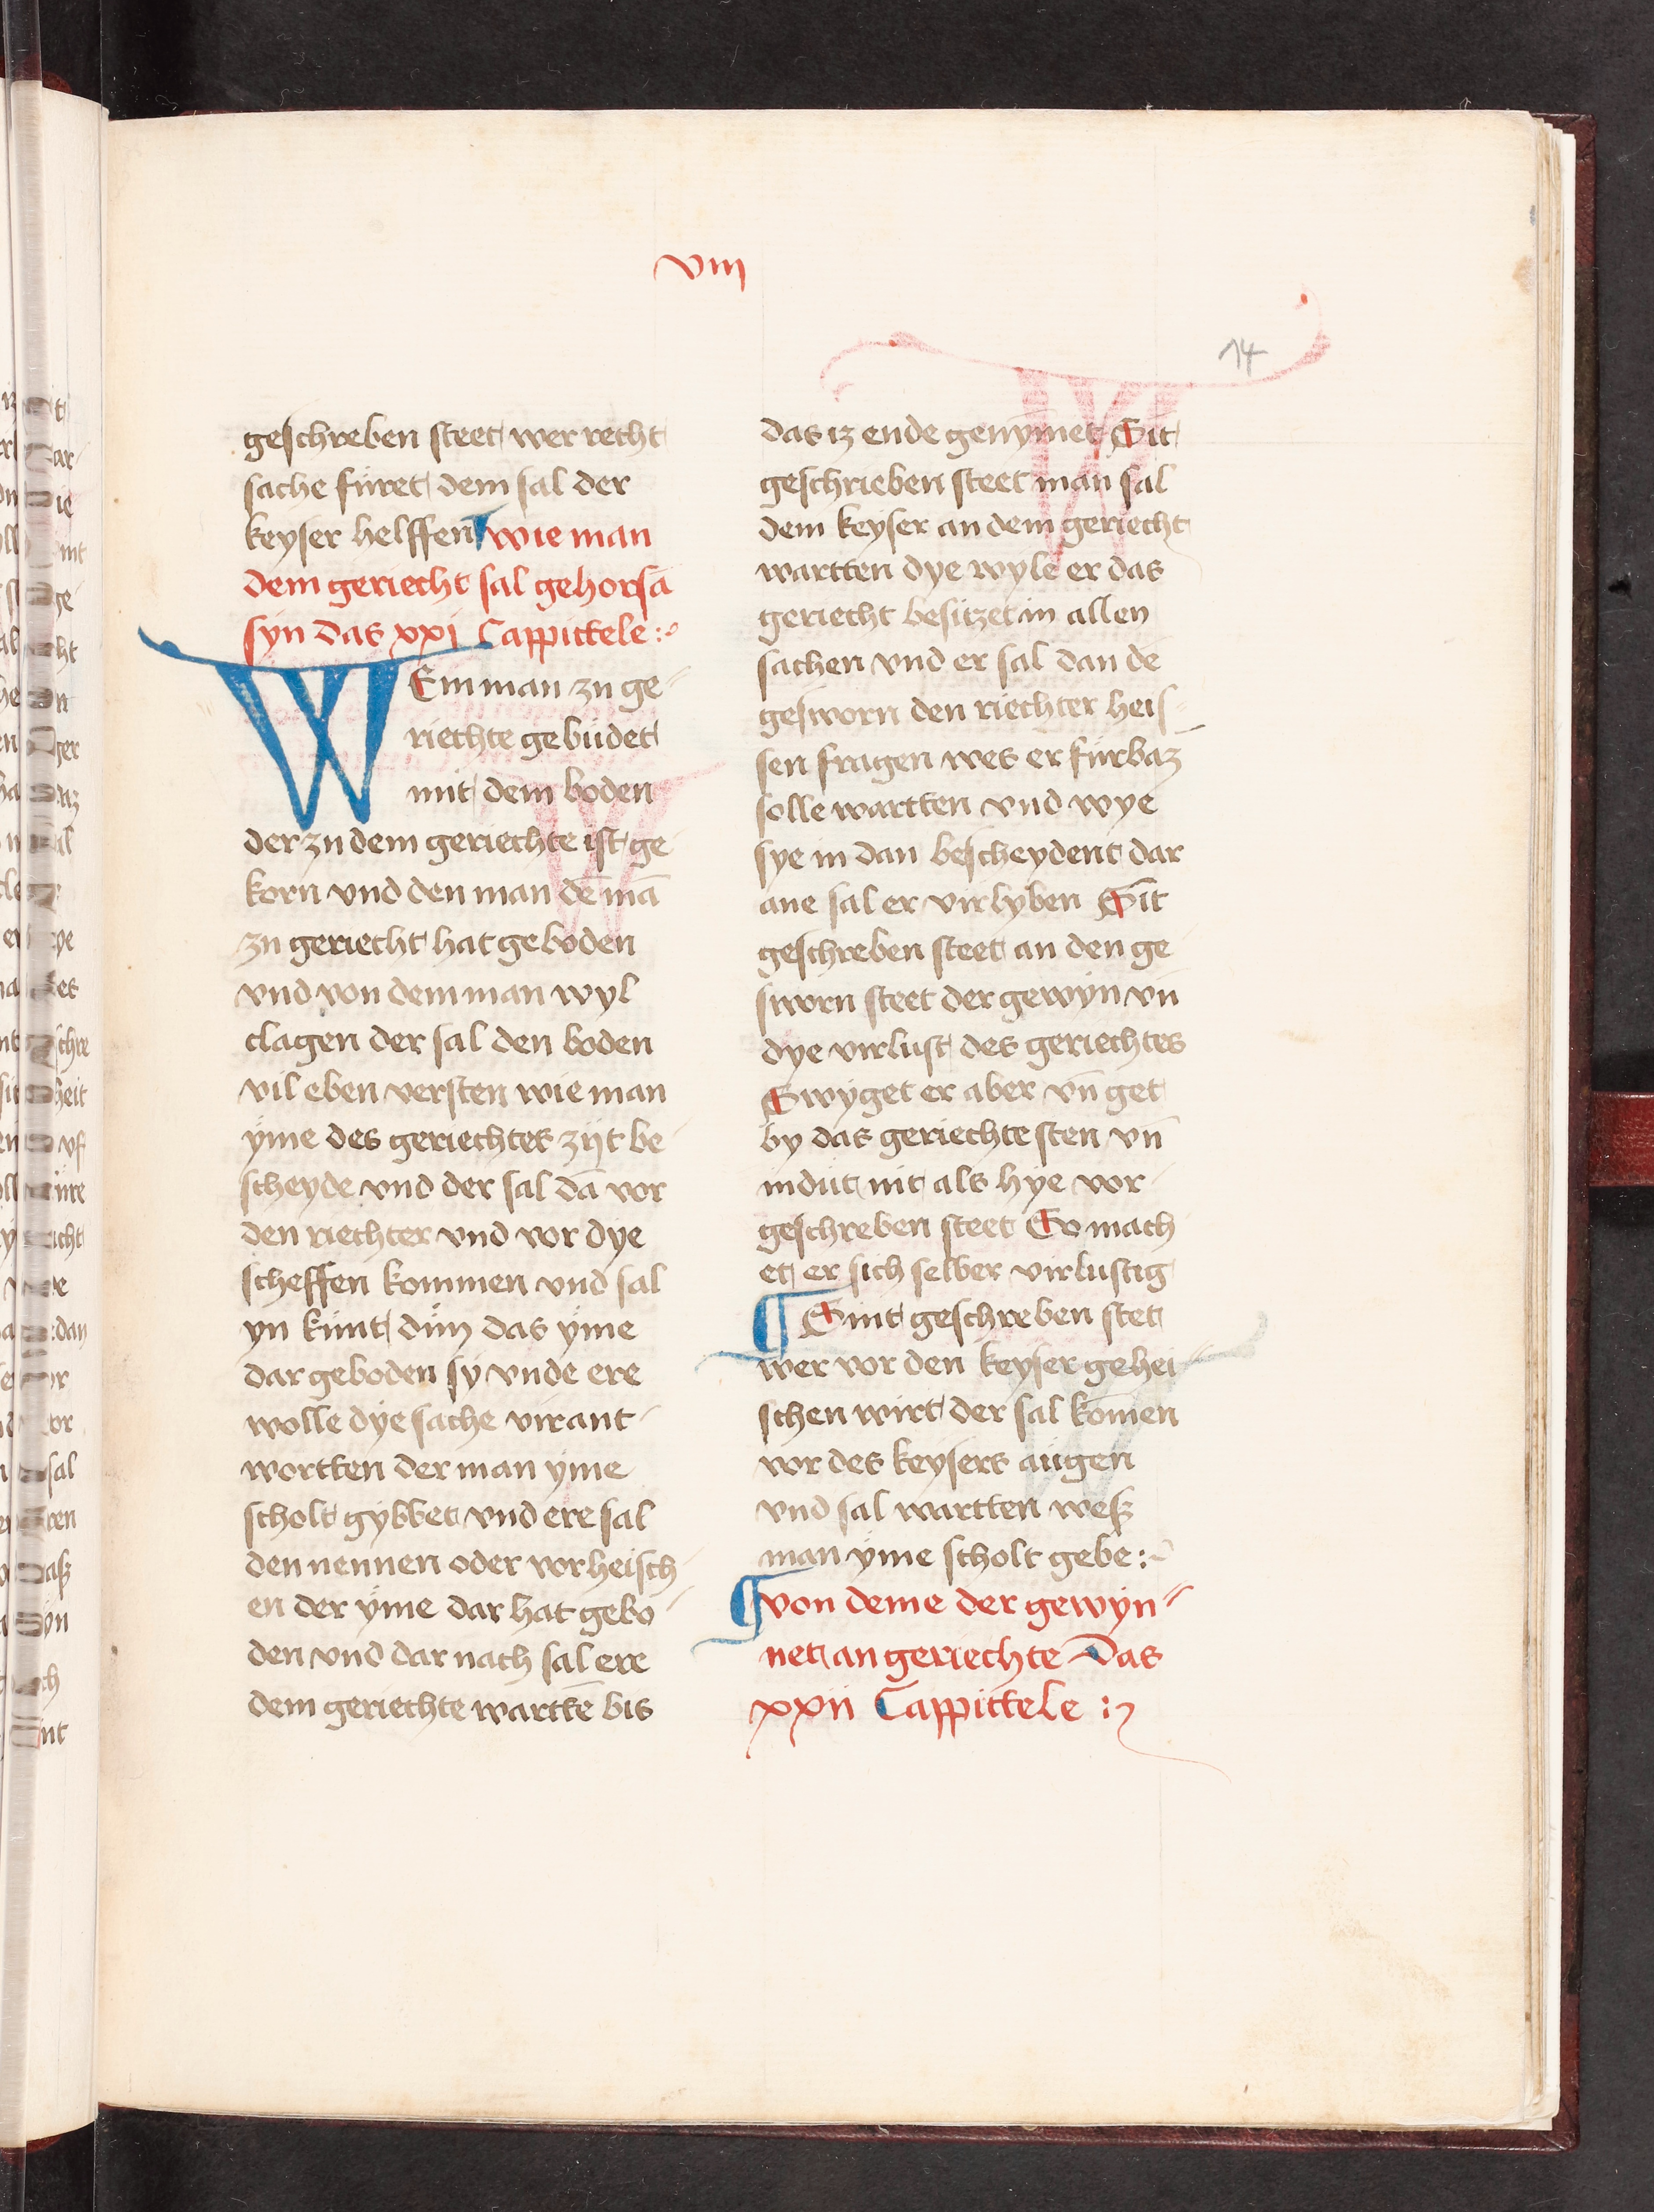 viij
14
geschreben steet wer recht
sache füret dem sal der
keyser helffen wie man
dem geriecht sal gehorsā
syn das xxj Cappittele :~
WEm man zu ge-
riechte gebüdet
mit dem boden
der zu dem geriechte ist ge
korn vnd den man dē mā
zu geriecht hat geboden
vnd von dem man wyl
clagen der sal den boden
vil eben versten wie man
yme des geriechtes zijt be-
scheyde vnd der sal dā vor
den riechter vnd vor dye
scheffen kommen vnd sal
yn künt dün das yme
dar geboden sy vnde ere
wolle dye sache virant-
wortten der man yme
scholt gybbet vnd ere sal
den nennen oder vorheisch-
en der yme dar hat gebo-
den vnd dar nach sal ere
dem geriechte warttē bis
das iz ende genymet Sit
geschrieben steet man sal
dem keyser an dem geriecht
wartten dye wyle er das
geriecht besitzet in allen
sachen vnd er sal dan de
gesworn den riechter heis-
sen fragen wes er fürbaz
solle wartten vnd wye
sye in dan bescheydent dar
ane sal er virlyben Sit
geschreben steet an den ge
sworn steet der gewyn vn̄
dye virlust des geriechtes
Swyget er aber vn̄ get
by das geriechte sten vn̄
indüt nit als hye vor-
geschreben steet So mach
et er sich selber virlustig
¶ Sint geschreben stet
wer vor den keyser gehei-
schen wirt der sal kōmen
vor des keysers augen
vnd sal wartten wesz
man yme scholt gebe :~
¶ von deme der gewyn-
net an geriechte Das
xxij Cappittele :~